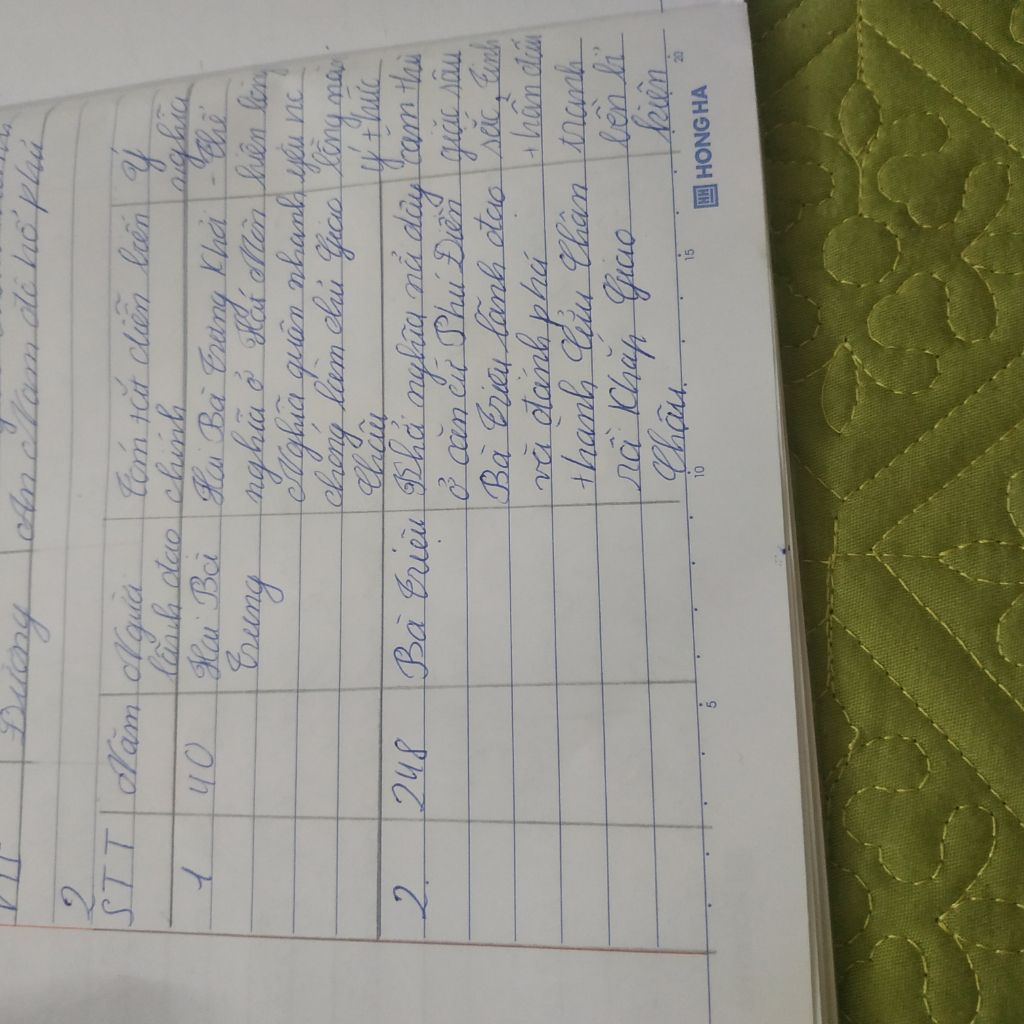 VII Đường An Nam đô hộ phủ
2
STT Năm Người Tóm tắt diễn biến Ý
lãnh đạo chính nghĩa
1 40 Hai Bà Hai Bà Trưng khởi - Thể
Trưng nghĩa ở Hát Môn hiện lòng
Nghĩa quân nhanh yêu nc
chóng làm chủ Giao lòng
Châu ý thức
2 248 Bà Triệu Khởi nghĩa nổ dậy căm thù
ở căn cứ Phú Điền giặc sâu
Bà Triệu lãnh đạo sắc, tinh
và đánh phá thần đấu
thành Cửu Chân tranh
rồi khắp Giao bền bỉ
Châu. kiên
5 10 15 20
HH HONG HA